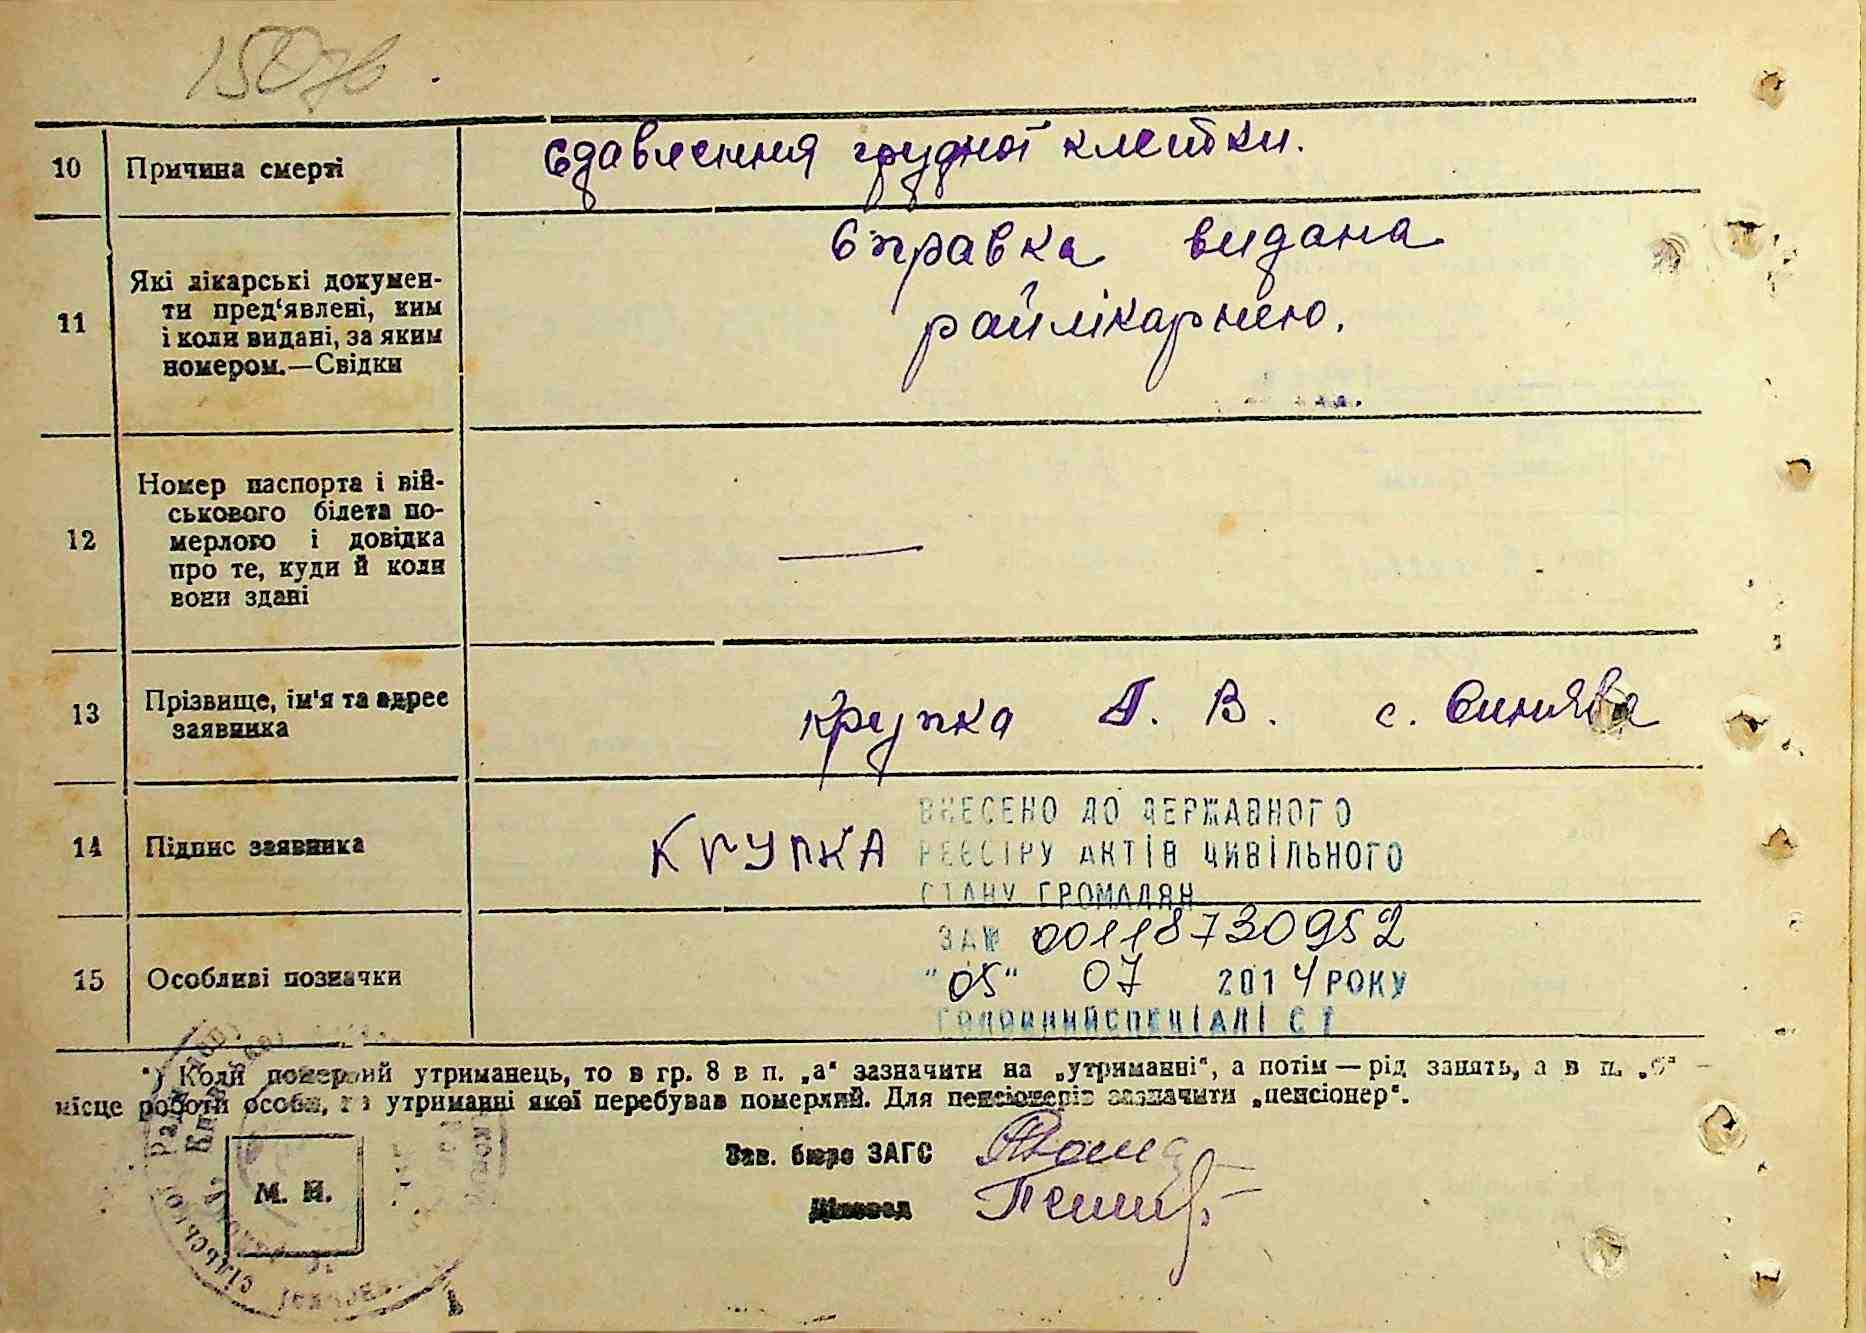 10
Причина смерті
Єдавлення грудної клетки.
11
Які лікарські докумен-
ти пред'явлені, ким
і коли видані, за яким
номером.—Свідки
Справка видана
райлікарнею.
12
Номер паспорта і вій-
ськового білета по-
мерлого і довідка
про те, куди й коли
вони здані
—
13
Прізвище, ім'я та адрес
заявника
Крупка Г. В. с. Синява
14
Підпис заявника
КРУПКА
ВНЕСЕНО ДО ДЕРЖАВНОГО
РЕЄСТРУ АКТІВ ЦИВІЛЬНОГО
СТАНУ ГРОМАДЯН
15
Особливі позначки
ЗА № 00118730952
"05" 07 2014 РОКУ
ГОЛОВНИЙ СПЕЦІАЛІСТ
*) Коли померлий утриманець, то в гр. 8 в п. „а“ зазначити на „утриманні“, а потім — рід занять, а в п. „б“ —
місце роботи особи, на утриманні якої перебував померлий. Для пенсіонерів зазначити „пенсіонер“.
Зав. бюро ЗАГС
Діловод
М. П.